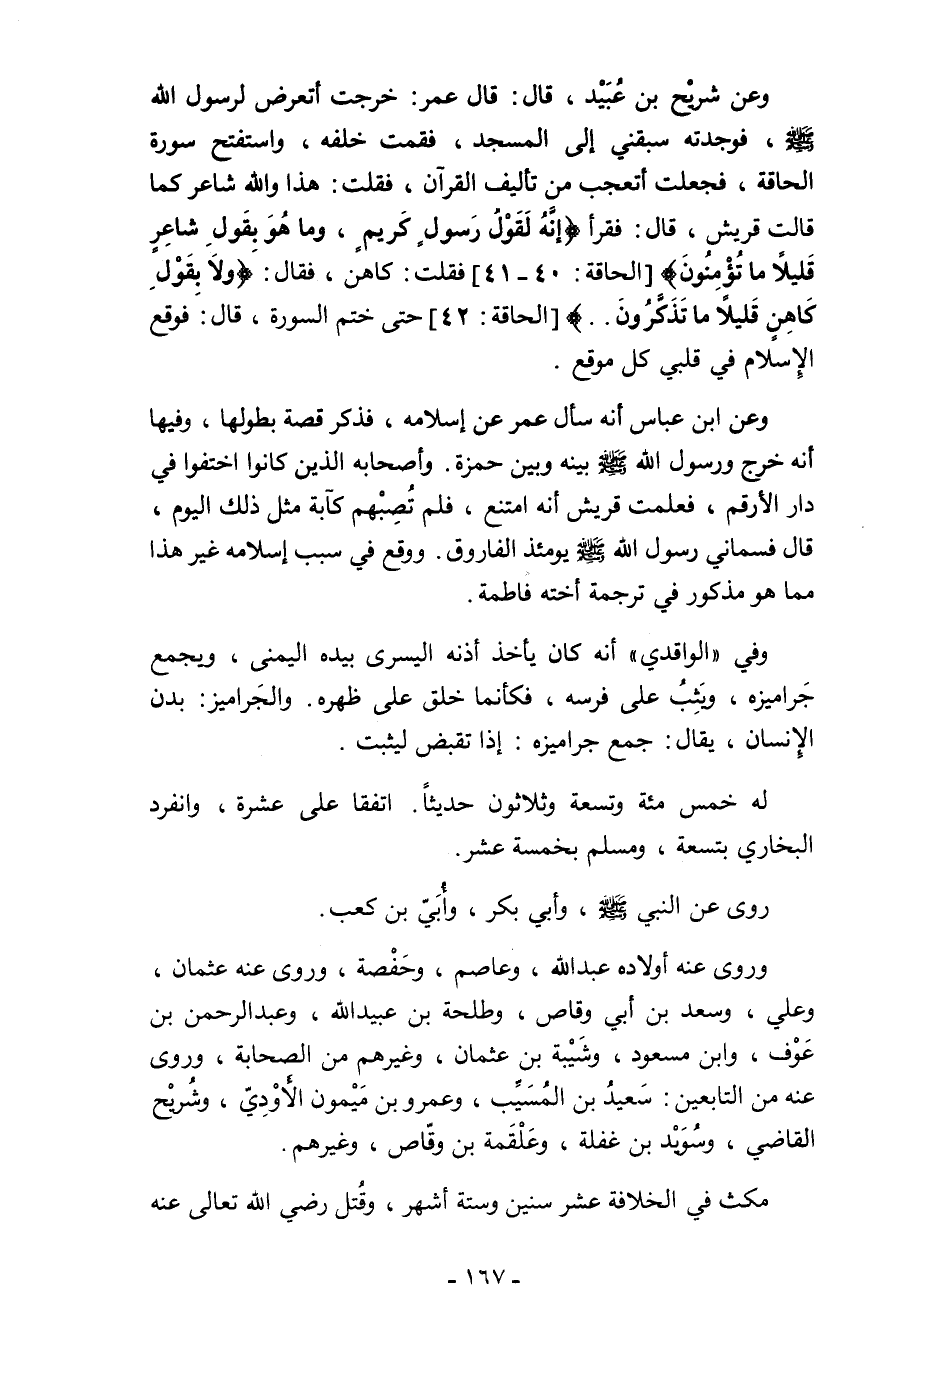 وعن شريْح بن عُبَيْد ، قال: قال عمر: خرجت أتعرض لرسول الله
ﷺ ، فوجدته سبقني إلى المسجد ، فقمت خلفه ، واستفتح سورة
الحاقة ، فجعلت أتعجب من تأليف القرآن ، فقلت: هذا والله شاعر كما
قالت قريش ، قال: فقرأ ﴿إنَّهُ لَقَوْلُ رَسولٍ كَريمٍ ، وما هُوَ بِقَولِ شاعِرٍ
قَليلًا ما تُؤْمِنُونَ﴾ [الحاقة: ٤٠ - ٤١] فقلت: كاهن ، فقال: ﴿ولَا بِقَوْلِ
كَاهِنٍ قَليلًا ما تَذَكَّرُونَ . .﴾ [الحاقة: ٤٢] حتى ختم السورة ، قال: فوقع
الإِسلام في قلبي كل موقع .
وعن ابن عباس أنه سأل عمر عن إسلامه ، فذكر قصة بطولها ، وفيها
أنه خرج ورسول الله ﷺ بينه وبين حمزة. وأصحابه الذين كانوا اختفوا في
دار الأرقم ، فعلمت قريش أنه امتنع ، فلم تُصِبْهم كآبة مثل ذلك اليوم ،
قال فسماني رسول الله ﷺ يومئذ الفاروق. ووقع في سبب إسلامه غير هذا
مما هو مذكور في ترجمة أخته فاطمة.
وفي «الواقدي» أنه كان يأخذ أذنه اليسرى بيده اليمنى ، ويجمع
جَراميزه ، ويَثِبُ على فرسه ، فكأنما خلق على ظهره. والجَراميز: بدن
الإِنسان ، يقال: جمع جراميزه : إذا تقبض ليثبت .
له خمس مئة وتسعة وثلاثون حديثاً. اتفقا على عشرة ، وانفرد
البخاري بتسعة ، ومسلم بخمسة عشر.
روى عن النبي ﷺ ، وأبي بكر ، وأُبَيّ بن كعب.
وروى عنه أولاده عبدالله ، وعاصم ، وحَفْصة ، وروى عنه عثمان ،
وعلي ، وسعد بن أبي وقاص ، وطلحة بن عبيدالله ، وعبدالرحمن بن
عَوْف ، وابن مسعود ، وشَيْبة بن عثمان ، وغيرهم من الصحابة ، وروى
عنه من التابعين: سَعيدُ بن المُسَيِّب ، وعمرو بن مَيْمون الأَوْدِيّ ، وشُريْح
القاضي ، وسُوَيْد بن غفلة ، وعَلْقمة بن وقّاص ، وغيرهم.
مكث في الخلافة عشر سنين وستة أشهر ، وقُتل رضي الله تعالى عنه
- ١٦٧ -